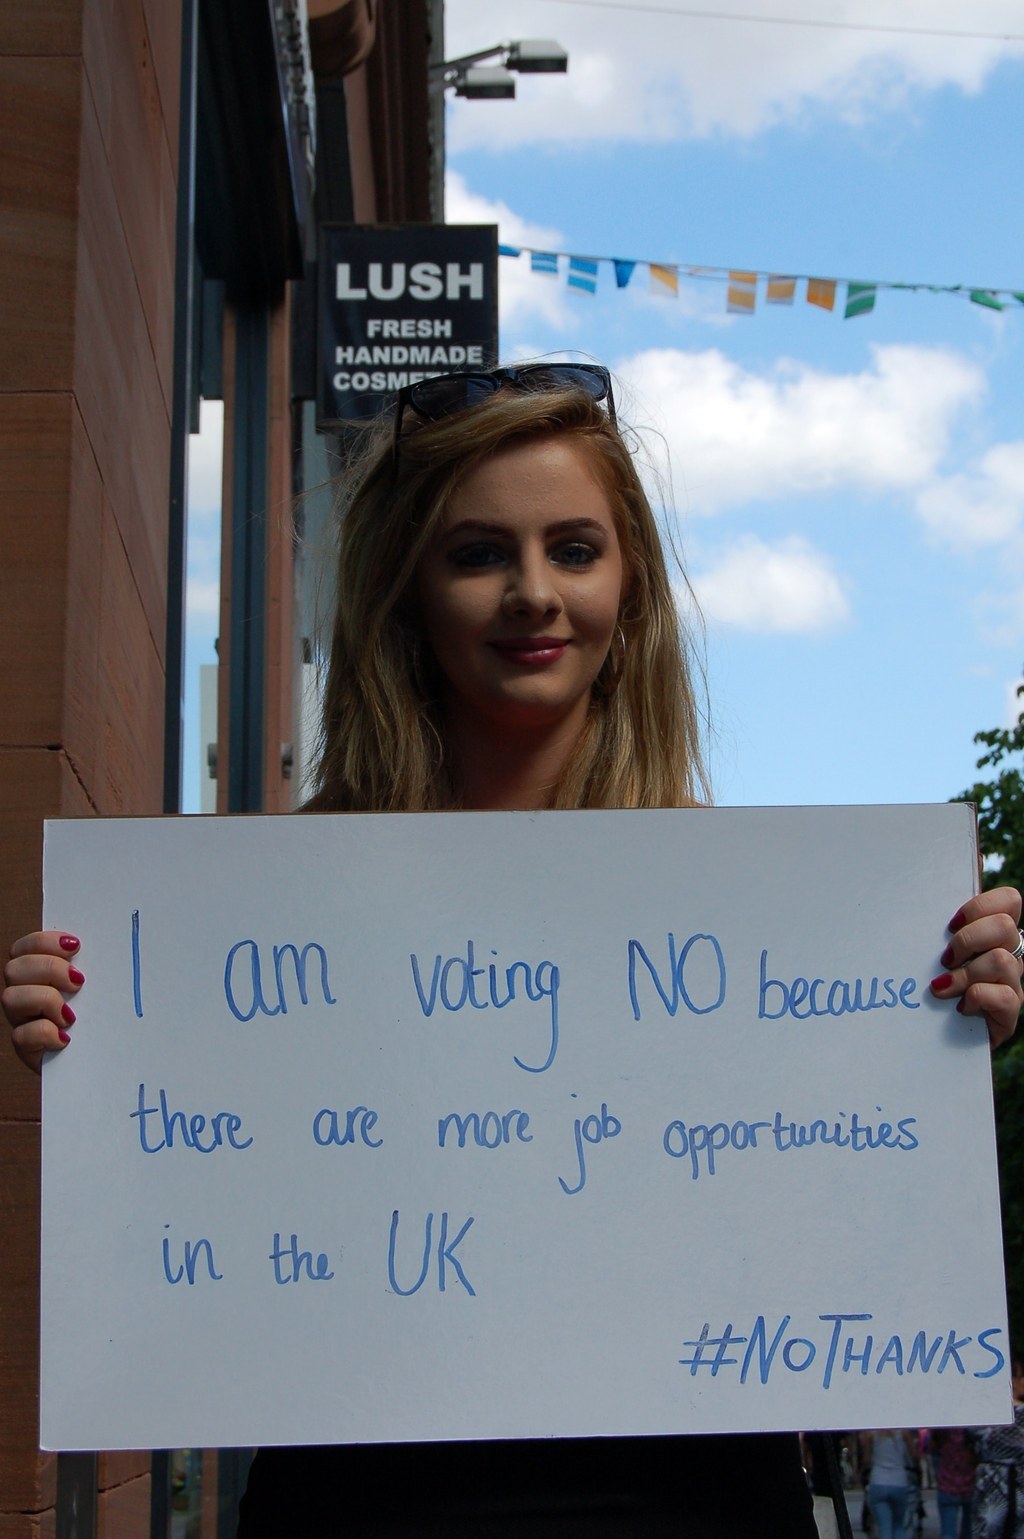 LUSH
FRESH
HANDMADE
COSMET
I am voting NO because
there are more job opportunities
in the UK
#NOTHANKS